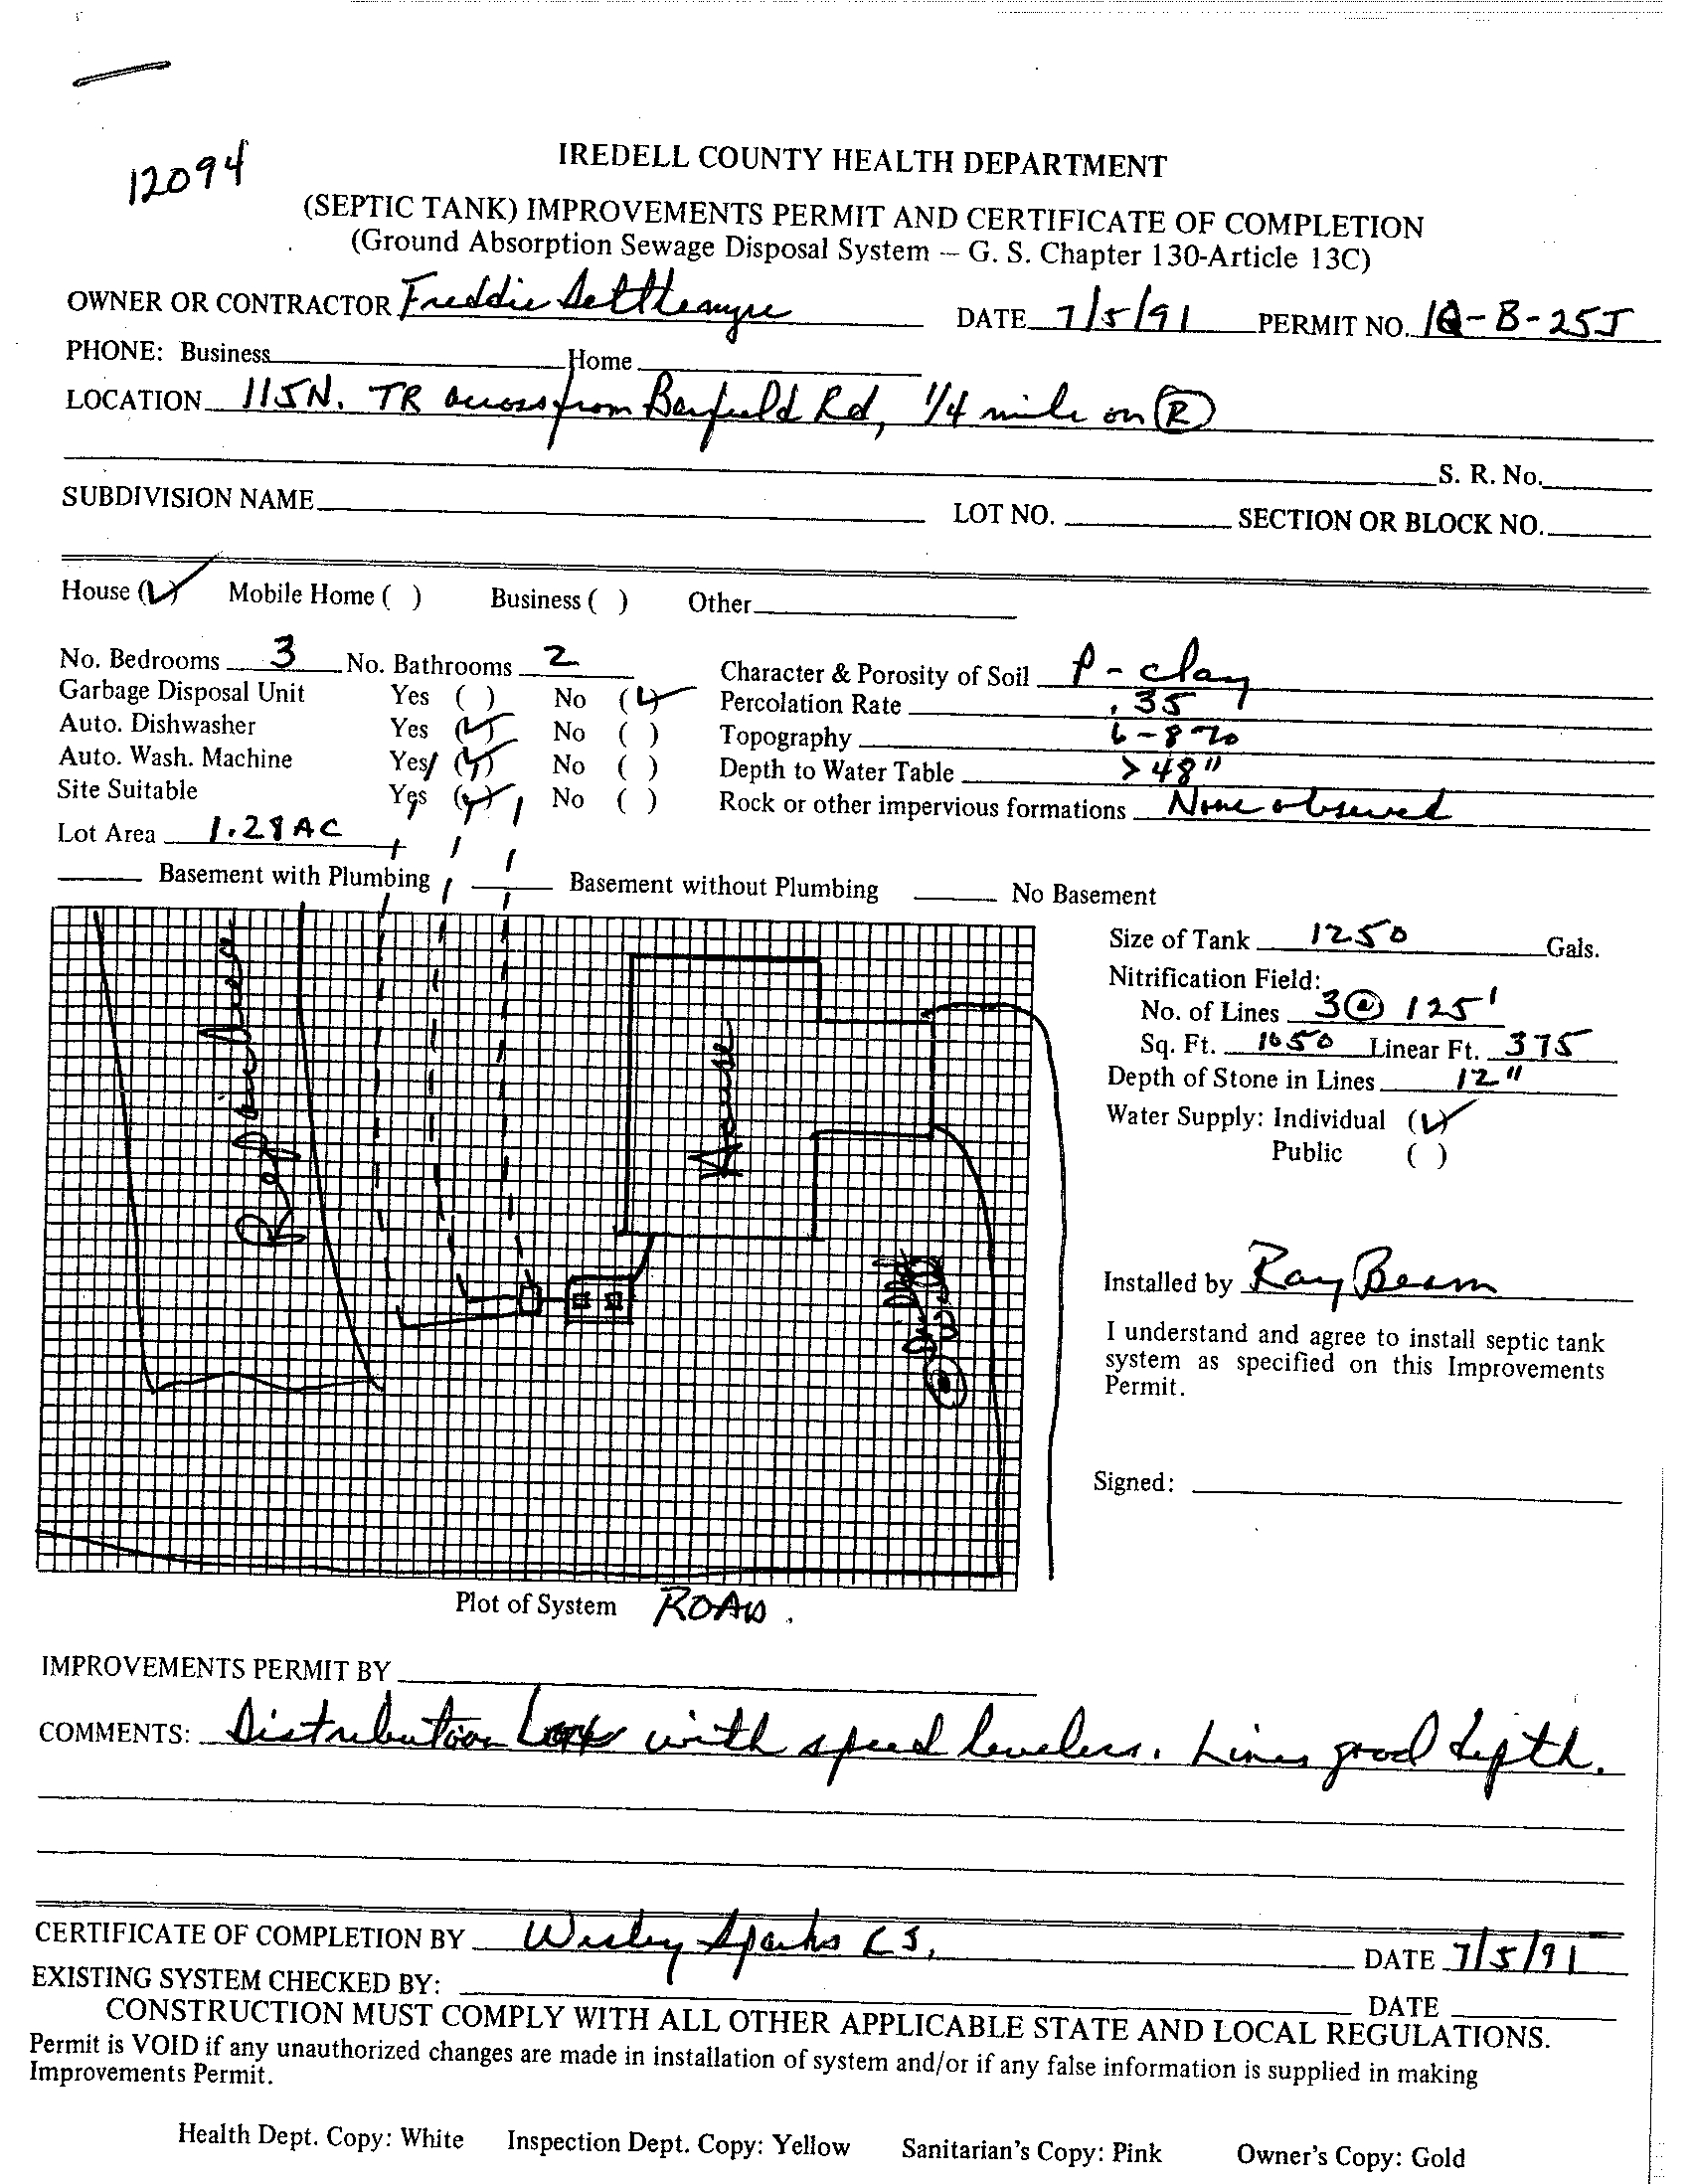 12094
IREDELL COUNTY HEALTH DEPARTMENT
(SEPTIC TANK) IMPROVEMENTS PERMIT AND CERTIFICATE OF COMPLETION
(Ground Absorption Sewage Disposal System -- G. S. Chapter 130-Article 13C)
OWNER OR CONTRACTOR Freddie Settlemyre DATE 7/5/91 PERMIT NO. 1Q-B-25J
PHONE: Business Home
LOCATION 115N. TR across from Barfield Rd, 1/4 mile on R
S. R. No.
SUBDIVISION NAME LOT NO. SECTION OR BLOCK NO.
House (✓) Mobile Home ( ) Business ( ) Other
No. Bedrooms 3 No. Bathrooms 2 Character & Porosity of Soil P - clay
Garbage Disposal Unit Yes ( ) No (✓) Percolation Rate .35
Auto. Dishwasher Yes (✓) No ( ) Topography 6-8%
Auto. Wash. Machine Yes (✓) No ( ) Depth to Water Table > 48"
Site Suitable Yes (✓) No ( ) Rock or other impervious formations None observed
Lot Area 1.28 AC
Basement with Plumbing Basement without Plumbing No Basement
Size of Tank 1250 Gals.
Nitrification Field:
No. of Lines 3 @ 125'
Sq. Ft. 1050 Linear Ft. 375
Depth of Stone in Lines 12"
Water Supply: Individual (✓)
Public ( )
House
Installed by Ray Beam
I understand and agree to install septic tank
system as specified on this Improvements
Permit.
Signed:
Plot of System ROAD.
IMPROVEMENTS PERMIT BY
COMMENTS: Distribution box with speed levelers. Lines good depth.
CERTIFICATE OF COMPLETION BY Wesley Sparks R.S. DATE 7/5/91
EXISTING SYSTEM CHECKED BY: DATE
CONSTRUCTION MUST COMPLY WITH ALL OTHER APPLICABLE STATE AND LOCAL REGULATIONS.
Permit is VOID if any unauthorized changes are made in installation of system and/or if any false information is supplied in making
Improvements Permit.
Health Dept. Copy: White Inspection Dept. Copy: Yellow Sanitarian's Copy: Pink Owner's Copy: Gold